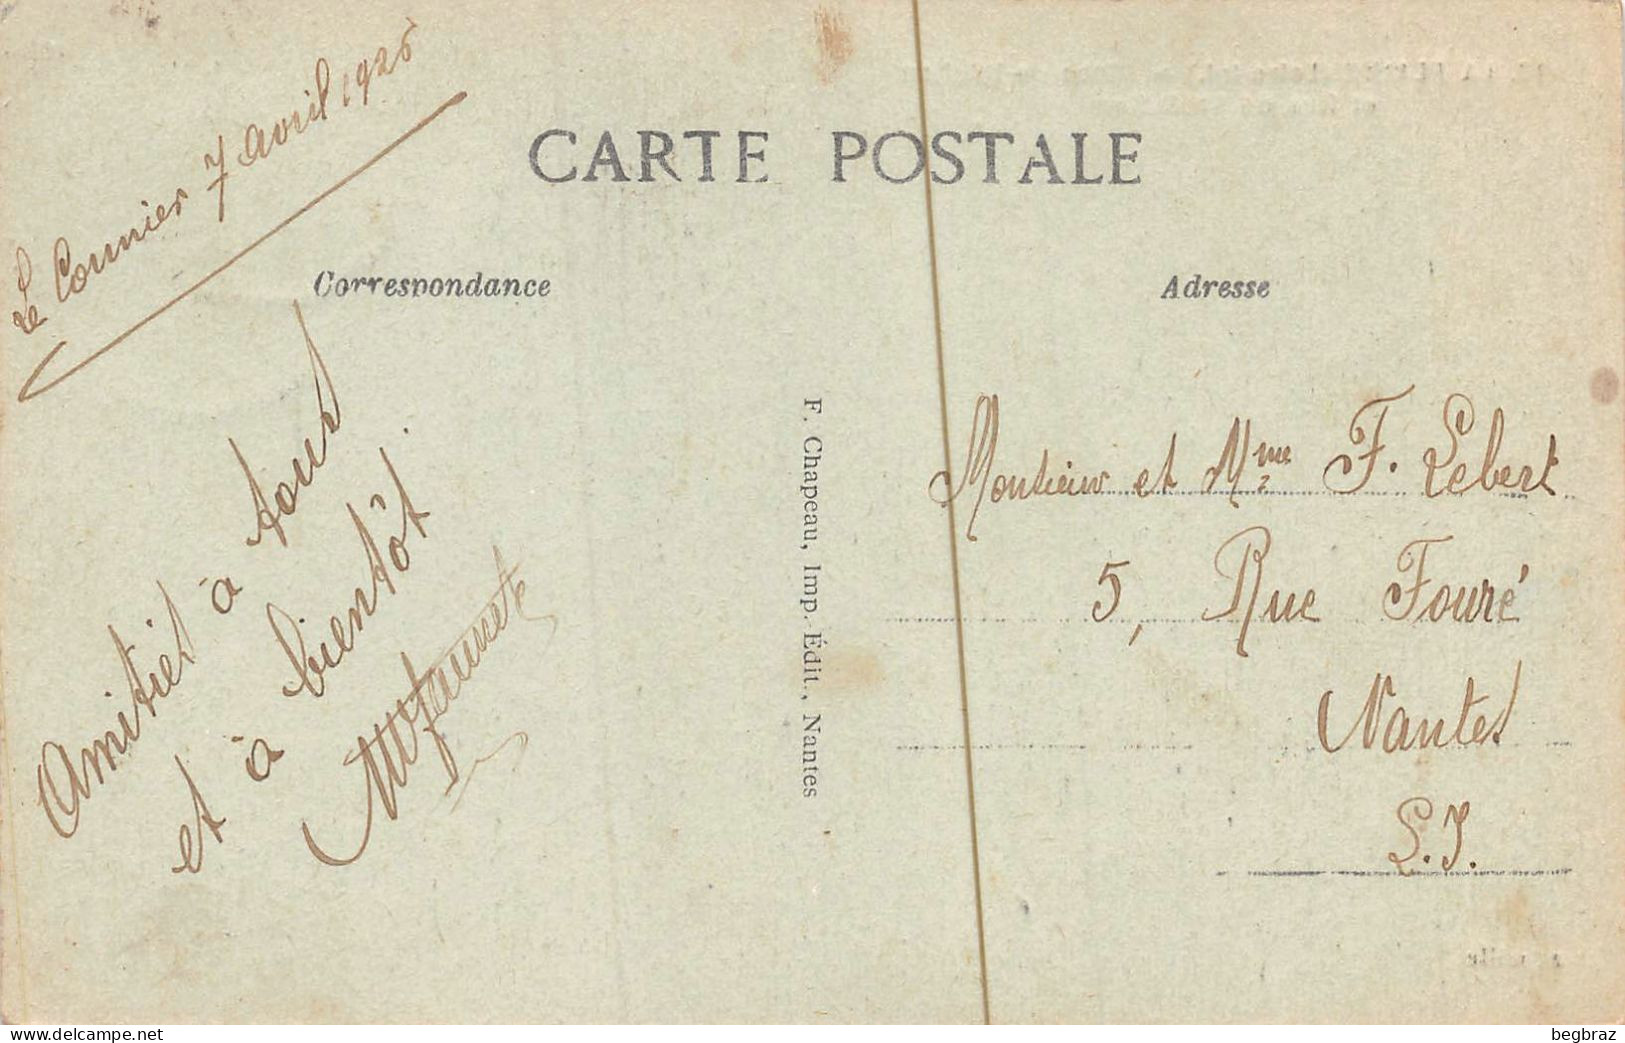 CARTE POSTALE
Le Cormier 7 avril 1925
Correspondance
Amitiés à tous
et à bientôt.
F. Chapeau, Imp. Édit., Nantes
Adresse
Monsieur et Mme F. Lebert
5, Rue Fouré
Nantes
L.I.
https://www.delcampe.net
begbraz